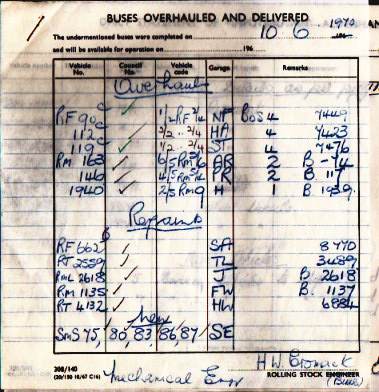 BUSES OVERHAULED AND DELIVERED
The undermentioned buses were completed on 10 6 1970
and will be available for operation on 196
Vehicle No. Council No. Vehicle code Garage Remarks
Overhauls
RF 90 C 1/2RF2/4 NF BoS 4 7449
112 C 1/2 .. 2/4 HA 4 7423
119 C 1/2 .. 2/4 ST 4 7476
RM 163 AR 2 B
146 PR 2 B 117
1940 2/5RM9 H 1 B 1939
Repaints
RF 662 B SA 8770
RT 2559 TL 3489
RML 2618 J B 2618
RM 1135 FW B 1137
RT 4132 HW 6884
New
SMS 75, 80, 83, 86, 87 SE
308/140
Mechanical Eng
ROLLING STOCK ENGINEER